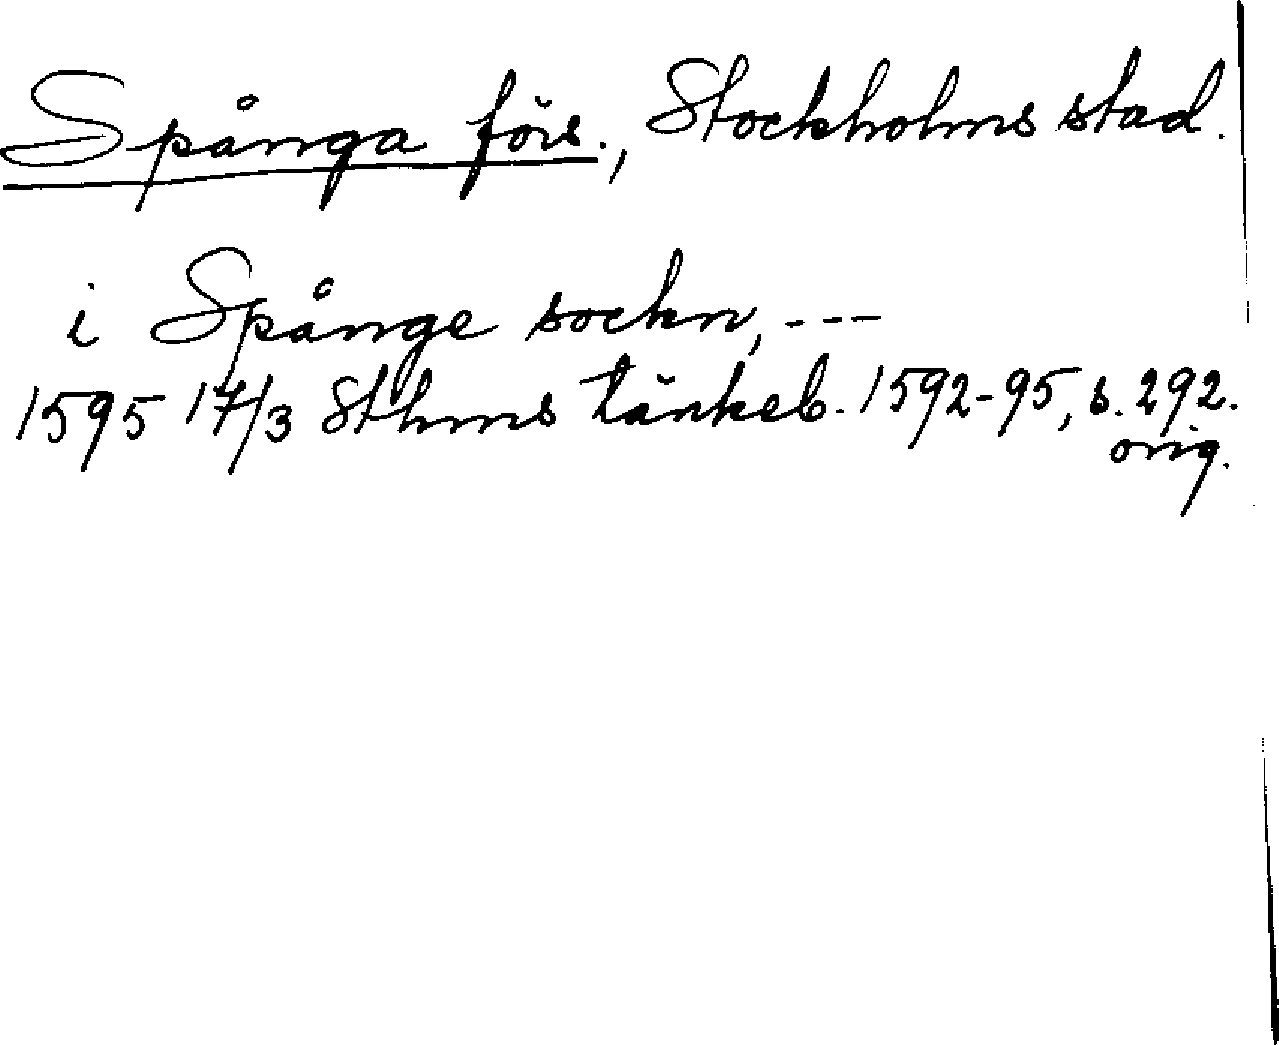 Spånga förs., Stockholms stad.
i Spånge sockn, ---
1595 17/3 Sthms tänkeb. 1592-95, s. 292.
orig.